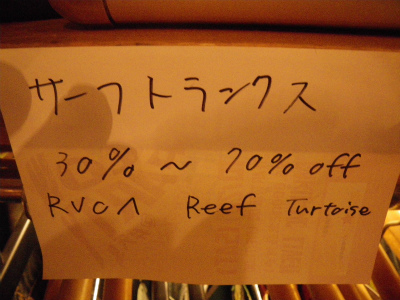 サーフトランクス
30% ~ 70% off
RVCA Reef Turtoise